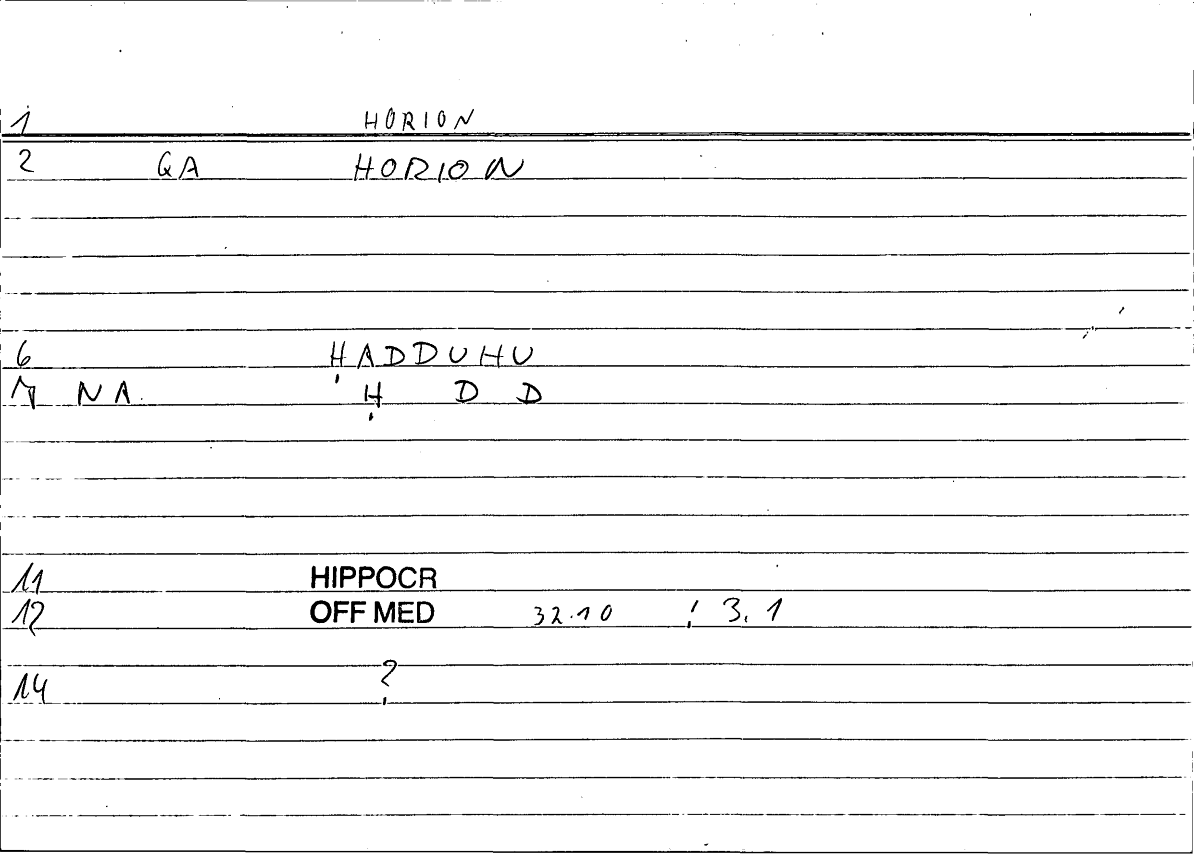 1 HORION
2 GA HORION
6 ḤADDUHU
7 NA Ḥ D D
11 HIPPOCR
12 OFF MED 32.10 ; 3.1
14 ?